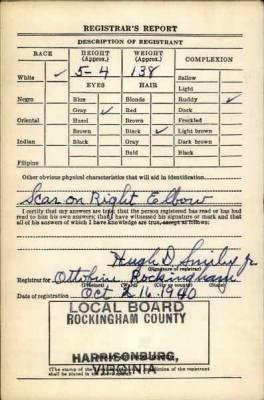 REGISTRAR'S REPORT
DESCRIPTION OF REGISTRANT
RACE HEIGHT (Approx.) WEIGHT (Approx.) COMPLEXION
White ✓ 5-4 138 Sallow
Light
EYES HAIR
Negro Blue Blonde Ruddy ✓
Gray ✓ Red Dark
Oriental Hazel Brown Freckled
Brown Black ✓ Light brown
Indian Black Gray Dark brown
Bald Black
Filipino
Other obvious physical characteristics that will aid in identification
Scar on Right Elbow
I certify that my answers are true; that the person registered has read or has had
read to him his own answers; that I have witnessed his signature or mark and that
all of his answers of which I have knowledge are true, except as follows:
Hugh D. Smiley Jr
(Signature of registrar)
Registrar for Ottobine Rockingham
(Precinct) (Ward) (City or county) (State)
Date of registration Oct 16 1940
LOCAL BOARD
ROCKINGHAM COUNTY
HARRISONBURG,
VIRGINIA
(The stamp of the of the registrant
shall be placed in the above space.)